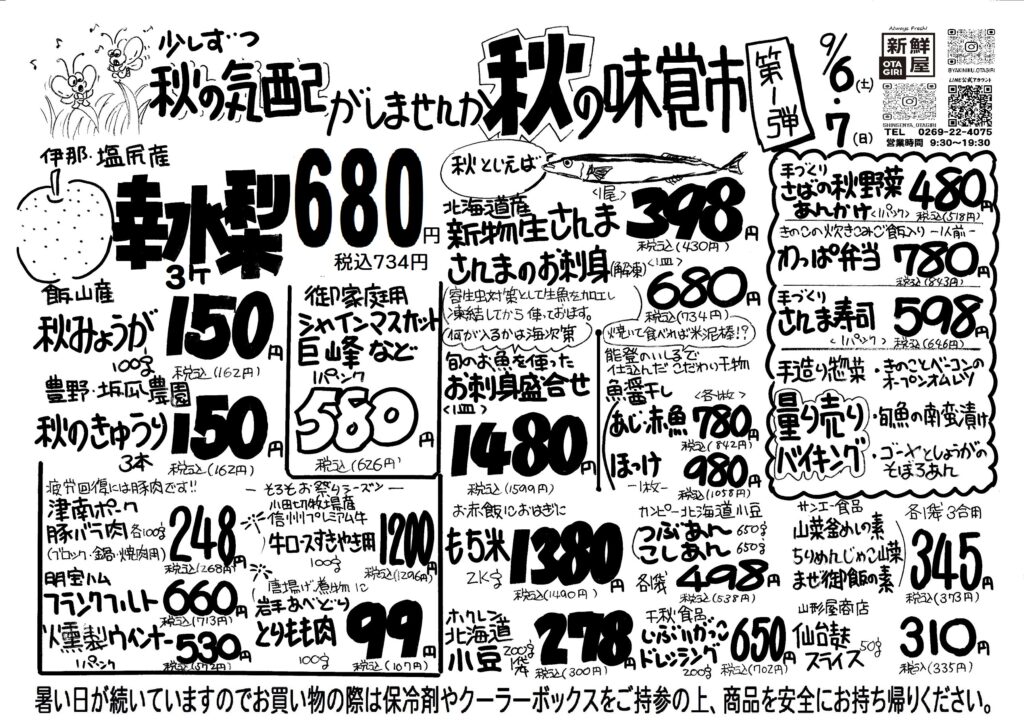 少しずつ
秋の気配がしませんか
秋の味覚市
第1弾
9/6(土)・7(日)
Always Fresh!
新鮮屋
OTAGIRI
@YAKINIKU.OTAGIRI
LINE公式アカウント
SHINSENYA_OTAGIRI
TEL 0269-22-4075
営業時間 9:30~19:30
伊那・塩尻産
幸水梨
3ヶ
680円
税込734円
飯山産
秋みょうが
100g
150円
税込(162円)
豊野・坂瓜農園
秋のきゅうり
3本
150円
税込(162円)
御家庭用
シャインマスカット
巨峰など
1パック
580円
税込(626円)
疲労回復には豚肉です!!
津南ポーク
豚バラ肉 各100g
(ブロック・鍋・焼肉用)
248円
税込(268円)
明宝ハム
フランクフルト
660円
税込(713円)
燻製ウインナー
1パック
530円
税込(572円)
―そろそろお祭りシーズン―
小田切牧場産
信州プレミアム牛
牛ロースすきやき用
100g
1200円
税込(1296円)
唐揚げ・煮物に
岩手あべどり
とりもも肉
100g
99円
税込(107円)
秋といえば
北海道産
新物生さんま
〈1尾〉
398円
税込(430円)
さんまのお刺身(解凍)
〈1皿〉
680円
税込(734円)
(寄生虫対策として生魚を加工し
凍結してから使っております。)
何が入るかは海次第
旬のお魚を使った
お刺身盛合せ
〈1皿〉
1480円
税込(1599円)
焼いて食べれば米泥棒!?
能登のいしるで
仕込んだこだわり干物
魚醤干し
〈各1枚〉
あじ・赤魚
780円
税込(842円)
ほっけ
―1枚―
980円
税込(1058円)
手づくり
さばの秋野菜
あんかけ
〈1パック〉
480円
税込(518円)
きのこの炊きこみご飯入り ―1人前―
わっぱ弁当
780円
税込(843円)
手づくり
さんま寿司
〈1パック〉
598円
税込(646円)
手造り惣菜
量り売り
バイキング
・きのことベーコンの
オープンオムレツ
・旬魚の南蛮漬け
・ゴーヤとしょうがの
そぼろあん
お赤飯におはぎに
もち米
2Kg
1380円
税込(1490円)
ホクレン
北海道
小豆
200g
1袋
278円
税込(300円)
カンピー北海道小豆
つぶあん 650g
こしあん 650g
各1袋
498円
税込(538円)
千秋食品
いぶりがっこ
ドレッシング
200g
650円
税込(702円)
サンエー食品
各1袋 3合用
山菜釜めしの素
ちりめんじゃこ山菜
まぜ御飯の素
345円
税込(373円)
山形屋商店
仙台麸
スライス
50g
310円
税込(335円)
暑い日が続いていますのでお買い物の際は保冷剤やクーラーボックスをご持参の上、商品を安全にお持ち帰りください。